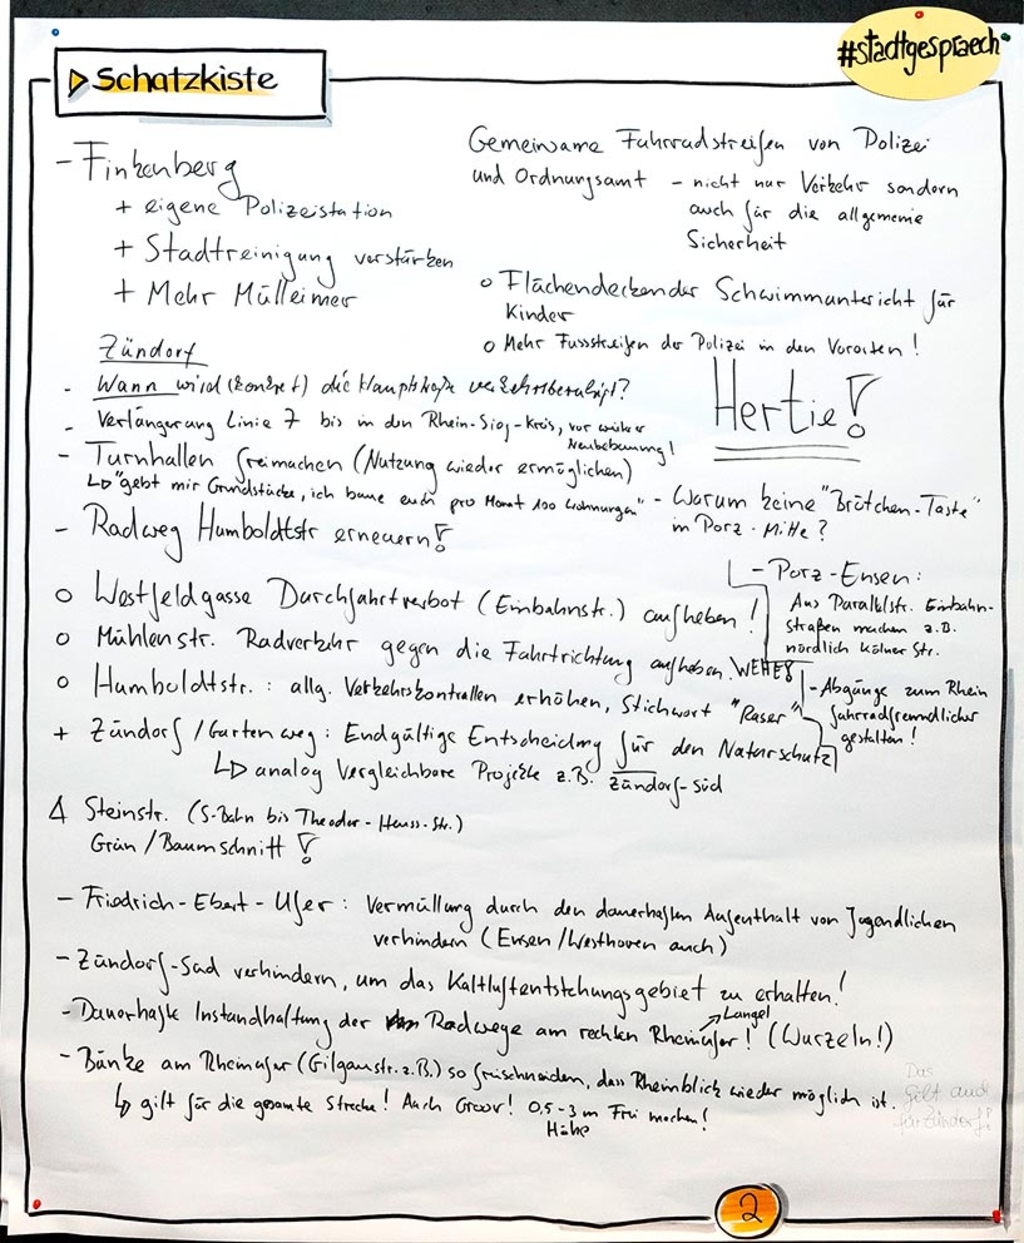 #stadtgespraech
Schatzkiste
- Finkenberg
+ eigene Polizeistation
+ Stadtreinigung verstärken
+ Mehr Mülleimer
Gemeinsame Fahrradstreifen von Polizei
und Ordnungsamt - nicht nur Verkehr sondern
auch für die allgemeine
Sicherheit
o Flächendeckender Schwimmunterricht für
Kinder
o Mehr Fussstreifen der Polizei in den Vororten!
Hertie!
Zündorf
- Wann wird (konkret) die Hauptstraße verkehrsberuhigt?
- Verlängerung Linie 7 bis in den Rhein-Sieg-Kreis, vor weiterer
Neubebauung!
- Turnhallen freimachen (Nutzung wieder ermöglichen)
↳ "gebt mir Grundstücke, ich baue euch pro Monat 100 Wohnungen"
- Radweg Humboldtstr erneuern!
- Warum keine "Brötchen-Taste"
in Porz-Mitte?
- Porz-Ensen:
Aus Parallelstr. Einbahn-
straßen machen z.B.
nördlich Kölner Str.
- Abgänge zum Rhein
fahrradfreundlicher
gestalten!
o Westfeldgasse Durchfahrtverbot (Einbahnstr.) aufheben!
o Mühlenstr. Radverkehr gegen die Fahrtrichtung aufheben. WEHE!
o Humboldtstr.: allg. Verkehrskontrollen erhöhen, Stichwort "Raser"
+ Zündorf/Gartenweg: Endgültige Entscheidung für den Naturschutz
↳ analog vergleichbare Projekte z.B. Zündorf-Süd
Δ Steinstr. (S-Bahn bis Theodor-Heuss-Str.)
Grün/Baumschnitt!
- Friedrich-Ebert-Ufer: Vermüllung durch den dauerhaften Aufenthalt von Jugendlichen
verhindern (Ensen/Westhoven auch)
- Zündorf-Süd verhindern, um das Kaltluftentstehungsgebiet zu erhalten!
- Dauerhafte Instandhaltung der Radwege am rechten Rheinufer! (Wurzeln!)
↗ Langel
- Bänke am Rheinufer (Gilgaustr. z.B.) so freischneiden, dass Rheinblick wieder möglich ist.
↳ gilt für die gesamte Strecke! Auch Groov! 0,5-3m Frei machen!
Höhe
Das
gilt auch
für Zündorf!
2